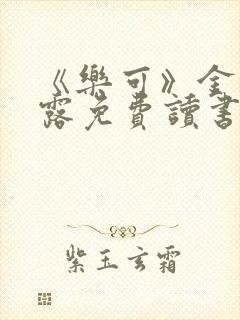 《樂可》金
露免費讀書
紫玉玄霜